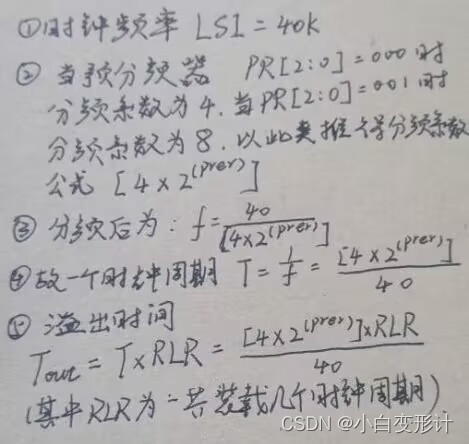 ①时钟频率 LSI=40K
② 当预分频器 PR[2:0]=000时
分频系数为4.当PR[2:0]=001时
分频系数为8.以此类推得分频系数
公式 [4×2^(prer)]
③ 分频后为：f=40/[4×2^(prer)]
④故一个时钟周期 T=1/f=[4×2^(prer)]/40
⑤ 溢出时间
Tout=T×RLR=[4×2^(prer)]×RLR/40
(其中RLR为一共装载几个时钟周期)
CSDN @小白变形计